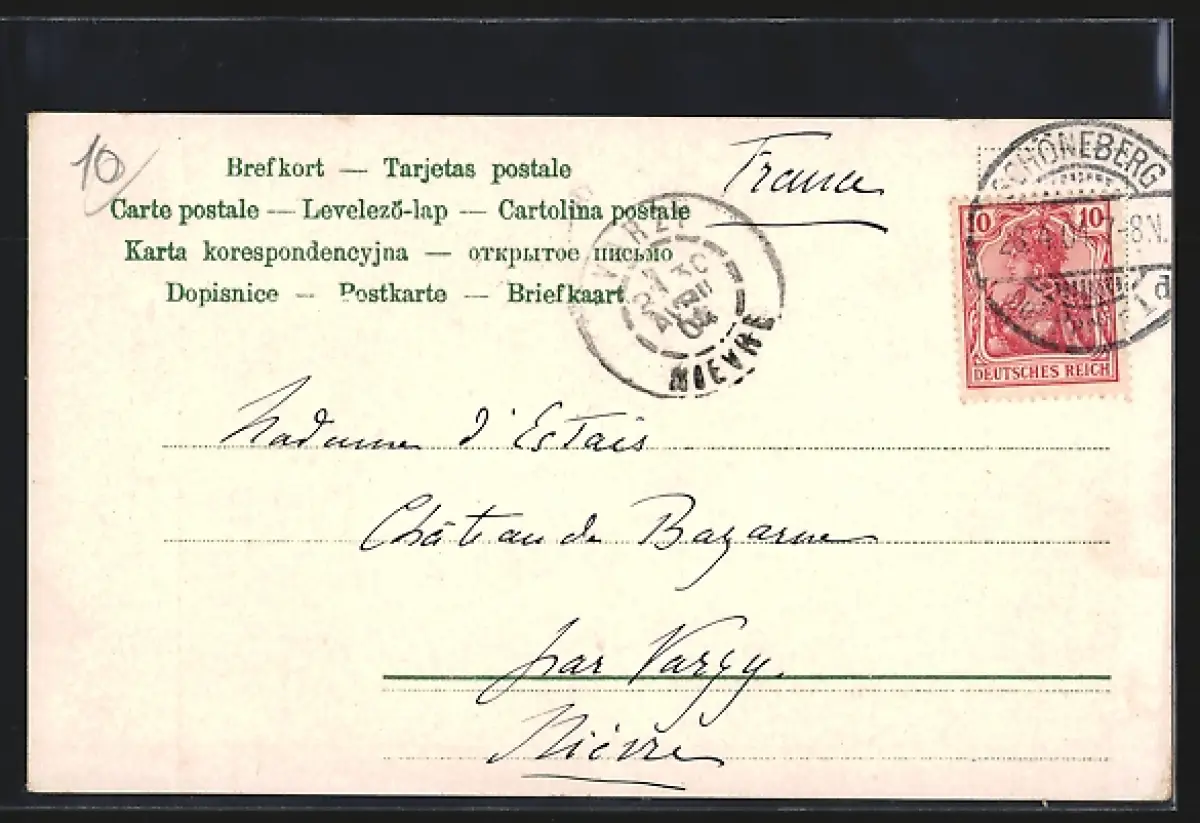 10
Brefkort — Tarjetas postale
France
Carte postale — Levelező-lap — Cartolina postale
Karta korespondencyjna — открытое письмо
Dopisnice — Postkarte — Briefkaart
SCHÖNEBERG
7-8N.
1 d
10 10
DEUTSCHES REICH
VARZY
30
AVRIL
04
NIEVRE
Madame d'Estais
Château de Bazarnes
par Varzy.
Nièvre